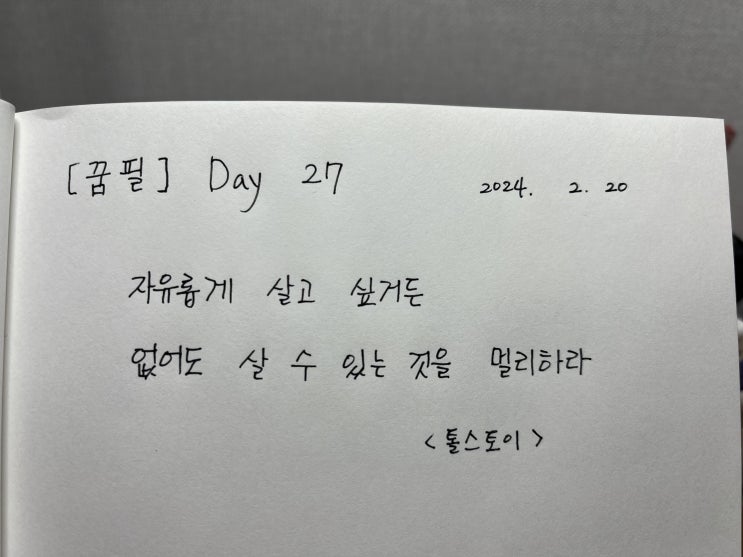 [꿈필] Day 27 2024. 2. 20
자유롭게 살고 싶거든
없어도 살 수 있는 것을 멀리하라
<톨스토이>